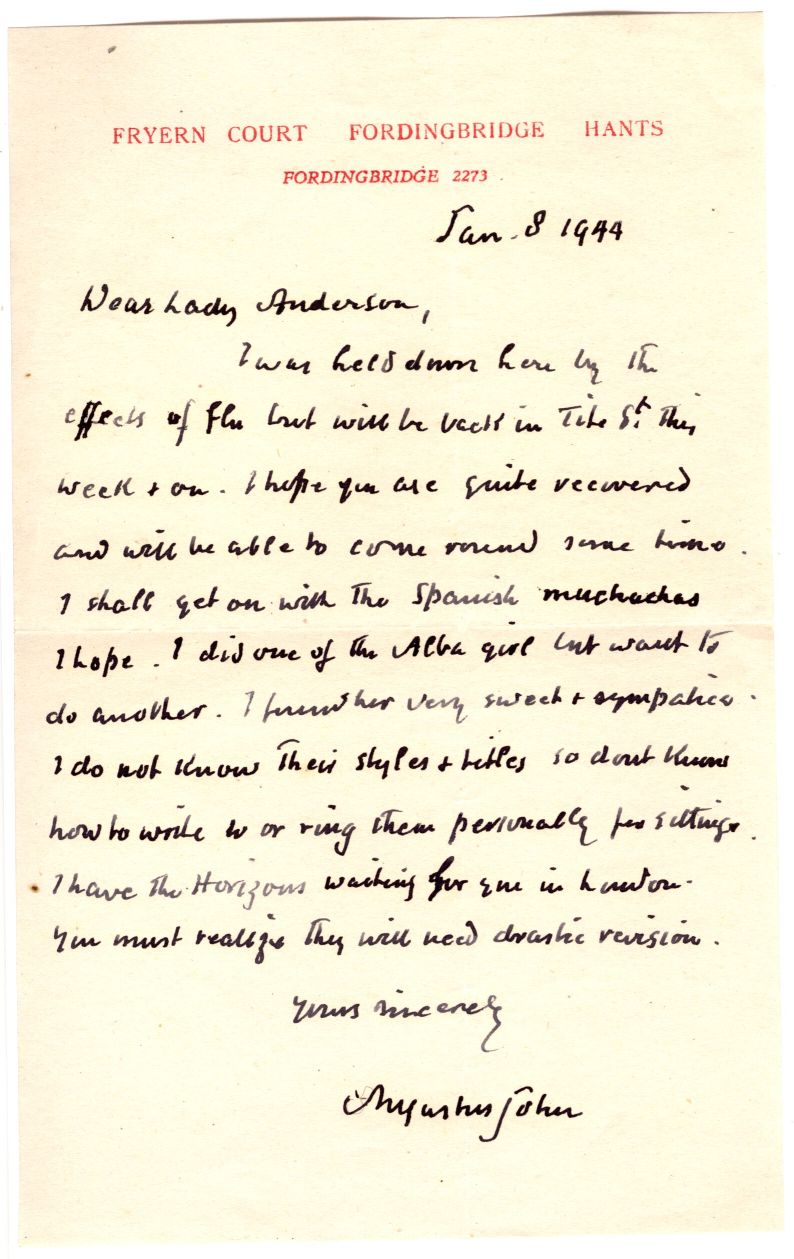 FRYERN COURT FORDINGBRIDGE HANTS
FORDINGBRIDGE 2273
Jan. 8 1944
Dear Lady Anderson,
I was held down here by the
effects of flu but will be back in Tite St. this
week & on. I hope you are quite recovered
and will be able to come round some time.
I shall get on with the Spanish muchachas
I hope. I did one of the Alba girl but want to
do another. I found her very sweet & sympatica.
I do not know their styles & titles so dont know
how to write to or ring them personally for sittings.
I have the Horizons waiting for you in London.
You must realize they will need drastic revision.
Yours sincerely
Augustus John